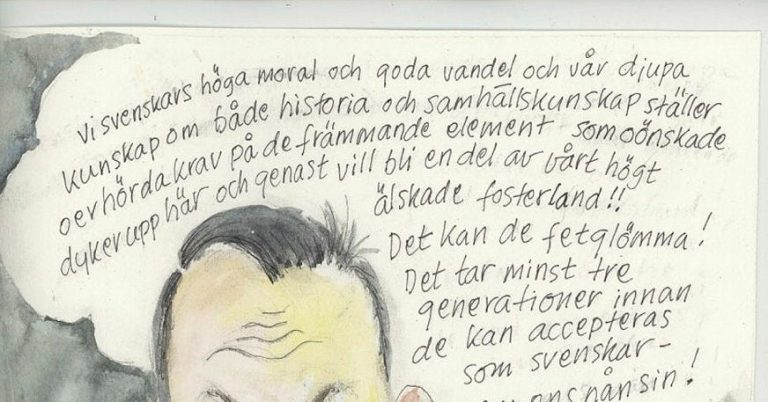 Vi svenskars höga moral och goda vandel och vår djupa
kunskap om både historia och samhällskunskap ställer
oerhörda krav på de främmande element som oönskade
dyker upp här och genast vill bli en del av vårt högt
älskade fosterland!!
Det kan de fetglömma!
Det tar minst tre
generationer innan
de kan accepteras
som svenskar-
ens nånsin!